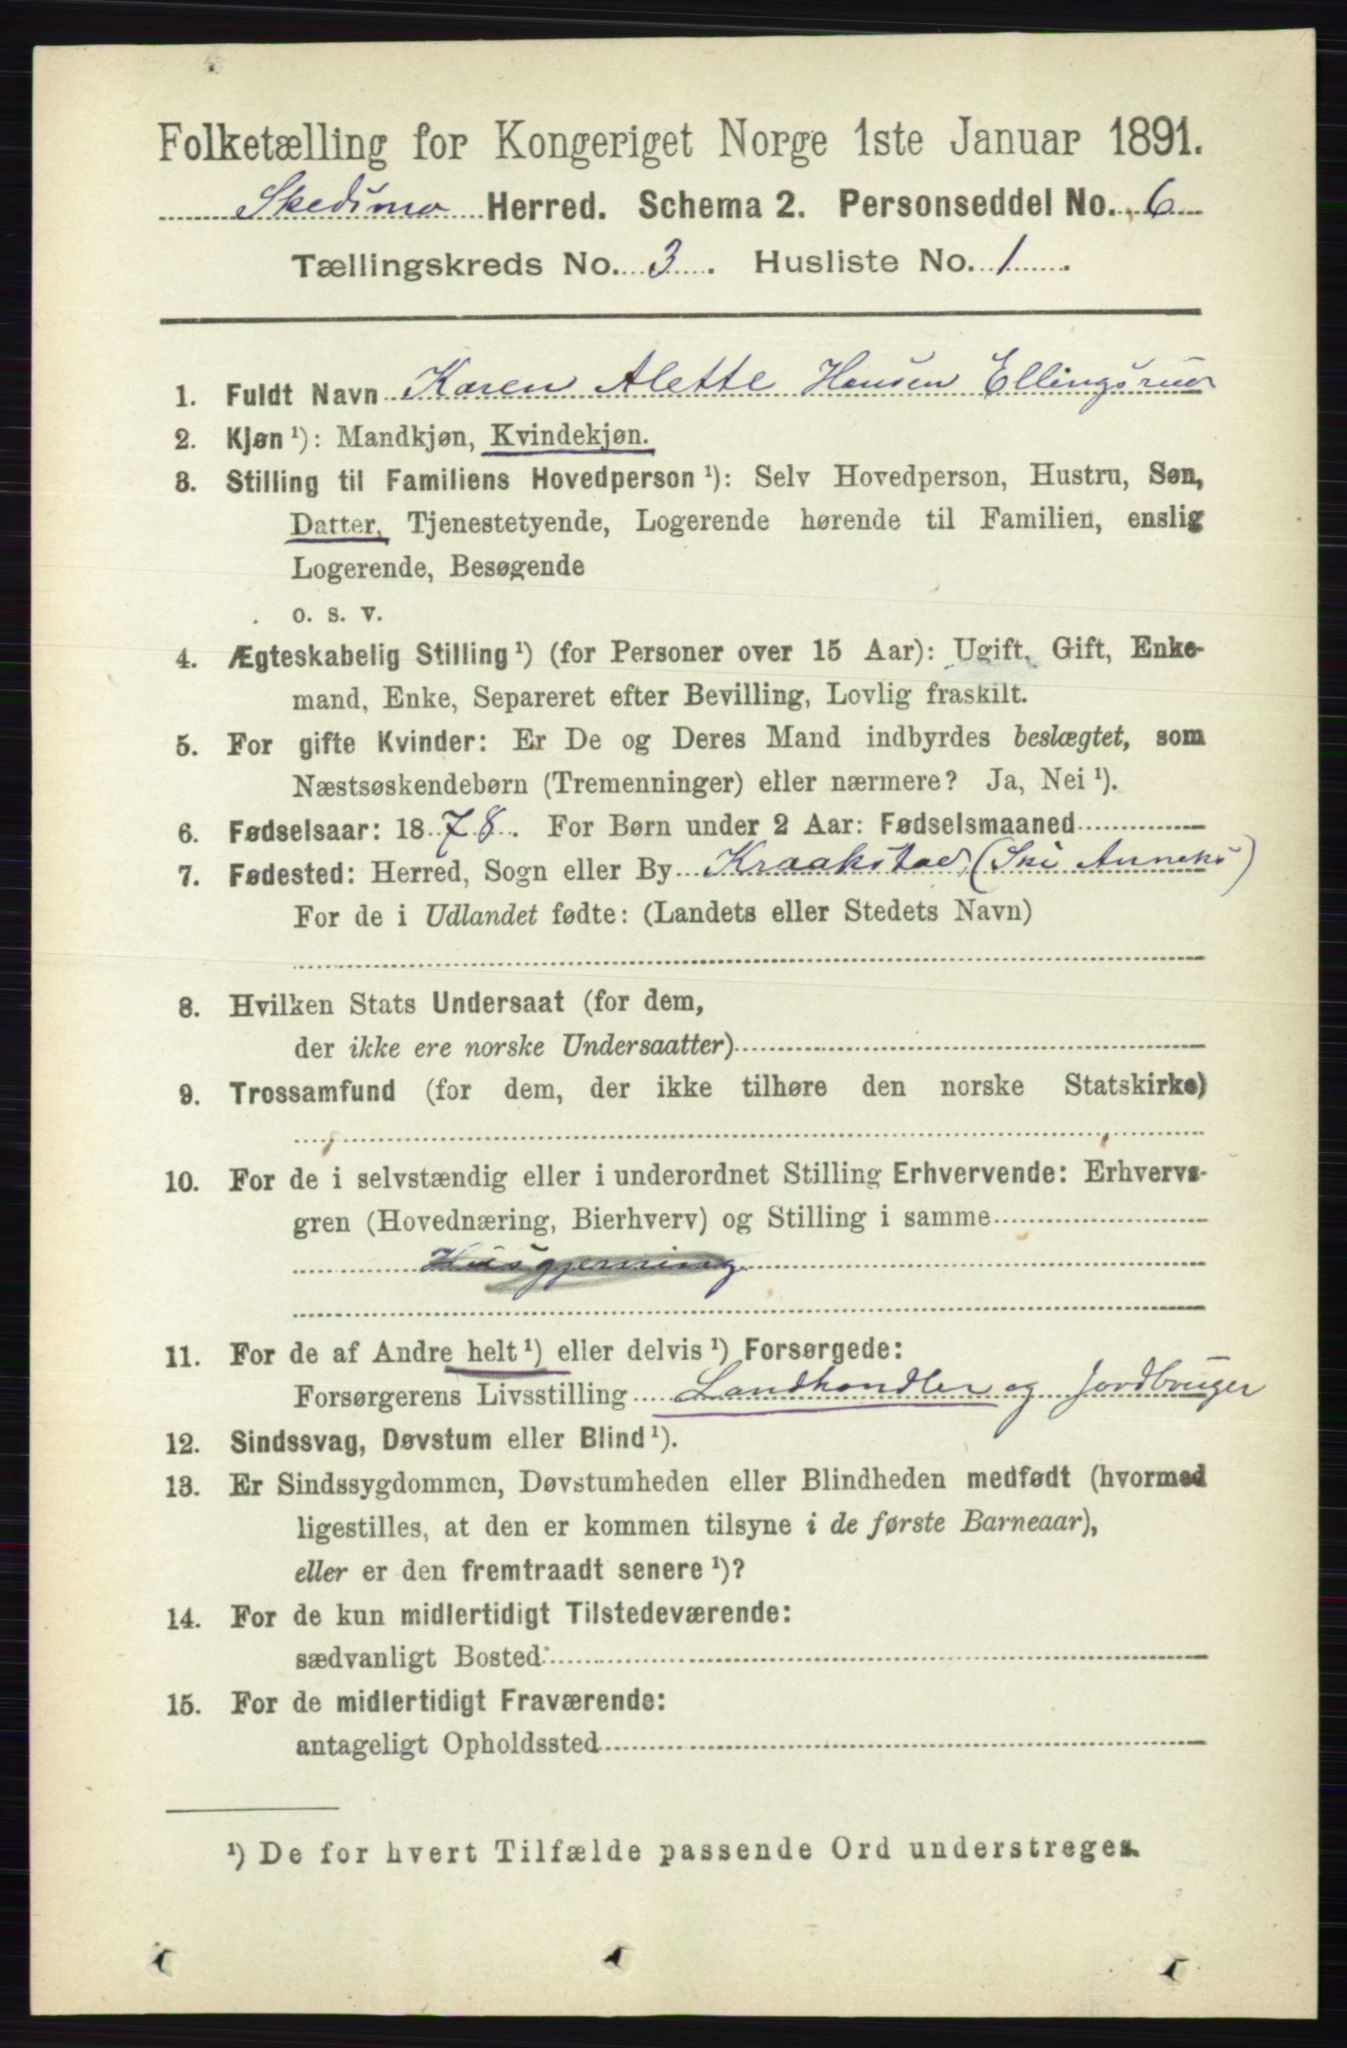 Folketælling for Kongeriget Norge 1ste Januar 1891.
Skedsmo Herred. Schema 2. Personseddel No. 6
Tællingskreds No. 3. Husliste No. 1.
1. Fuldt Navn Karen Alette Hansen Ellingsrud
2. Kjøn ¹): Mandkjøn, Kvindekjøn.
3. Stilling til Familiens Hovedperson ¹): Selv Hovedperson, Hustru, Søn,
Datter, Tjenestetyende, Logerende hørende til Familien, enslig
Logerende, Besøgende
o. s. v.
4. Ægteskabelig Stilling ¹) (for Personer over 15 Aar): Ugift, Gift, Enke-
mand, Enke, Separeret efter Bevilling, Lovlig fraskilt.
5. For gifte Kvinder: Er De og Deres Mand indbyrdes beslægtet, som
Næstsøskendebørn (Tremenninger) eller nærmere? Ja, Nei ¹).
6. Fødselsaar: 1878. For Børn under 2 Aar: Fødselsmaaned
7. Fødested: Herred, Sogn eller By Kraakstad (Ski Anneks)
For de i Udlandet fødte: (Landets eller Stedets Navn)
8. Hvilken Stats Undersaat (for dem,
der ikke ere norske Undersaatter)
9. Trossamfund (for dem, der ikke tilhøre den norske Statskirke)
10. For de i selvstændig eller i underordnet Stilling Erhvervende: Erhvervs-
gren (Hovednæring, Bierhverv) og Stilling i samme
Husgjerning
11. For de af Andre helt ¹) eller delvis ¹) Forsørgede:
Forsørgerens Livsstilling Landhandler og Jordbruger
12. Sindssvag, Døvstum eller Blind ¹).
13. Er Sindssygdommen, Døvstumheden eller Blindheden medfødt (hvormed
ligestilles, at den er kommen tilsyne i de første Barneaar),
eller er den fremtraadt senere ¹)?
14. For de kun midlertidigt Tilstedeværende:
sædvanligt Bosted:
15. For de midlertidigt Fraværende:
antageligt Opholdssted
¹) De for hvert Tilfælde passende Ord understreges.